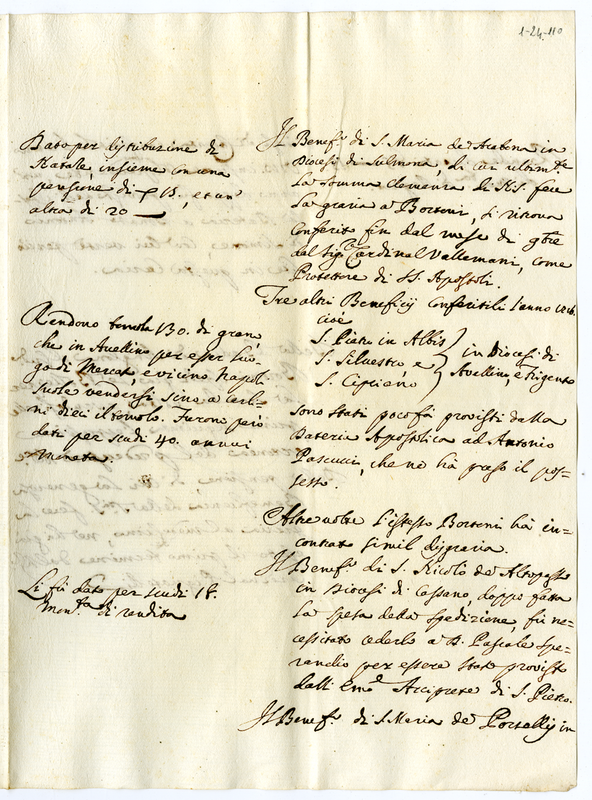 1-24-110
Dato per distribuzione di
Natale, insieme con una
pensione di 15, et un'
altra di 20
Il Benef.° di S. Maria de
Diocesi di Sulmona, di cui ultim.te
la somma clemenza di N.S. fece
la grazia a Bortoni, si ritrova
conferito fin dal mese di 9bre
dal Sig.r Cardinal Vallemani, come
Protettore di SS. Apostoli.
Tre altri Beneficij conferitili l'anno
cioè
S. Pietro in Albis
S. Silvestro, e
S. Cipriano
in Diocesi di
Avellino, e Frigento
Rendono tomola 130. di grano,
che in Avellino per esser luo-
go di Mercato, e vicino Napoli
suole vendersi sino a carli-
ni dieci il tomolo. Furono però
dati per scudi 40. annui
moneta.
sono stati pocofà provisti dalla
Dateria Apostolica ad Antonio
Pascucci, che ne hà preso il pos-
sesso.
Altre volte l'istesso Bortoni hà in-
contrato simil disgrazia.
Il Benef.° di S. Nicolò de Altopasso
in Diocesi di Cassano, doppo fatta
la spesa della spedizione, fù ne-
cessitato cederlo a D. Pascale Spe-
randio per essere stato provisto
dall'Em.° Arciprete di S. Pietro.
Li fù dato per scudi 18.
mon.ta di rendita
Il Benef.° di S. Maria de in